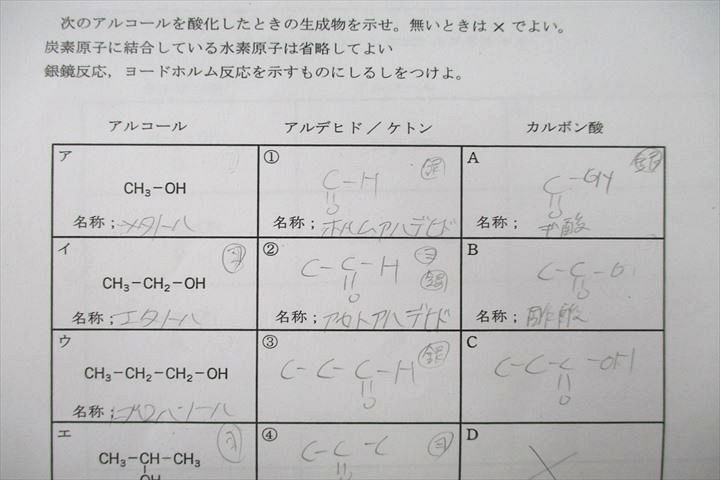 次のアルコールを酸化したときの生成物を示せ。無いときは × でよい。
炭素原子に結合している水素原子は省略してよい
銀鏡反応，ヨードホルム反応を示すものにしるしをつけよ。
アルコール
アルデヒド ／ ケトン
カルボン酸
ア
CH₃－OH
名称；メタノール
①
C－H
O
銀
名称；ホルムアルデヒド
A
C－OH
O
銀
名称；ギ酸
イ
ヨ
CH₃－CH₂－OH
名称；エタノール
②
C－C－H
O
ヨ
銀
名称；アセトアルデヒド
B
C－C－O
O
名称；酢酸
ウ
CH₃－CH₂－CH₂－OH
名称；
③
C－C－C－H
O
銀
C
C－C－C－OH
O
エ
ヨ
CH₃－CH－CH₃
OH
④
C－C－C
ヨ
D
×